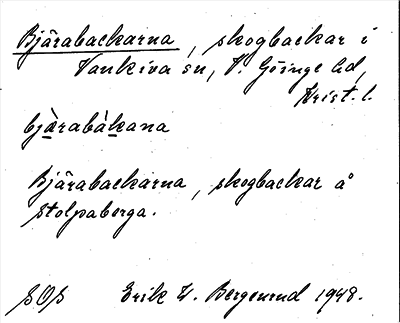 Bjärabackarna, skogbackar i
Vankiva sn, V. Göinge hd,
Krist. l.
bjàrabàkana
Bjärabackarna, skogbackar å
Stolpaberga.
SOS Erik W. Bergenrud 1948.